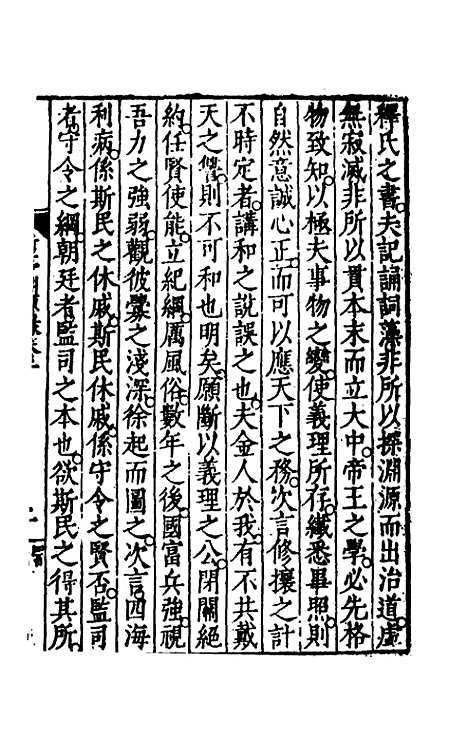 釋氏之書夫記誦詞藻非所以探淵源而出治道虛
無寂滅非所以貫本末而立大中帝王之學必先格
物致知以極夫事物之變使義理所存纖悉畢照則
自然意誠心正而可以應天下之務次言修攘之計
不時定者講和之說誤之也夫金人於我有不共戴
天之讐則不可和也明矣願斷以義理之公閉關絕
約任賢使能立紀綱厲風俗數年之後國富兵強視
吾力之強弱觀彼釁之淺深徐起而圖之次言四海
利病係斯民之休戚斯民休戚係守令之賢否監司
者守令之綱朝廷者監司之本也欲斯民之得其所